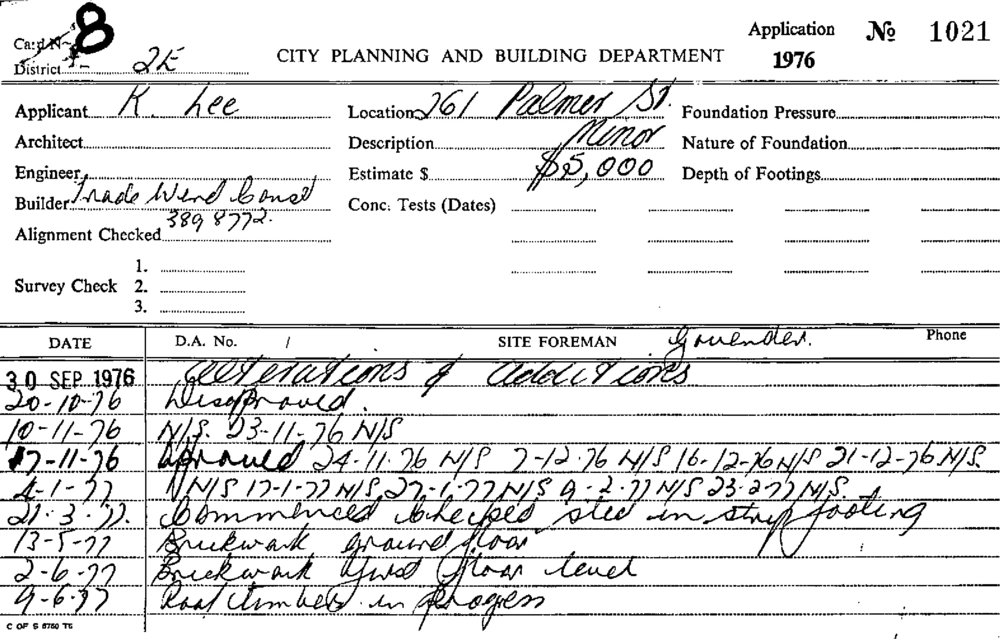 Card No 8
Application
1976
№ 1021
District 2E
CITY PLANNING AND BUILDING DEPARTMENT
Applicant K. Lee
Location 261 Palmer St.
Foundation Pressure
Architect
Description Minor
Nature of Foundation
Engineer
Estimate $ $5,000
Depth of Footings
Builder Trade Wind Const
389 8772.
Conc. Tests (Dates)
Alignment Checked
1.
Survey Check 2.
3.
DATE D.A. No. / SITE FOREMAN Phone
30 SEP 1976 Alterations & additions
20-10-76 Disapproved.
10-11-76 N/S. 23-11-76 N/S
17-11-76 Approved 24-11-76 N/S 7-12-76 N/S 16-12-76 N/S 21-12-76 N/S.
4-1-77 N/S 17-1-77 N/S, 27-1-77 N/S 9-2-77 N/S 23-2-77 N/S.
21-3-77. Commenced checked steel in strip footing
13-5-77 Brickwork ground floor
2-6-77 Brickwork first floor level
9-6-77 Roof timbers in progress
C OF S 8760 TS